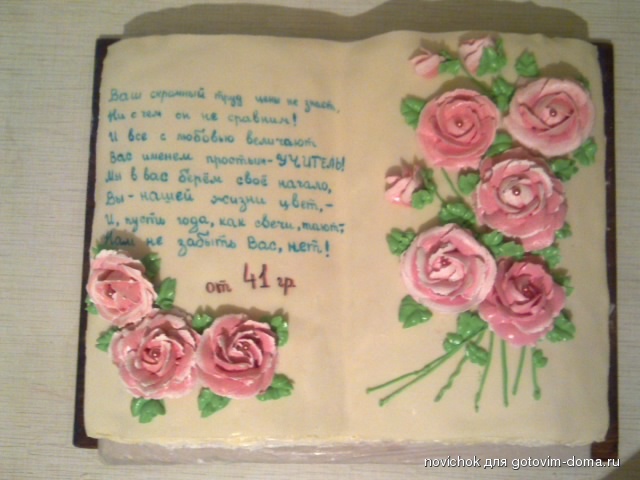 Ваш скромный труд цены не знает,
Ни с чем он не сравним!
И все с любовью величают
Вас именем простым-УЧИТЕЛЬ!
Мы в вас берём своё начало,
Вы-нашей жизни цвет,-
И, пусть года, как свечи, тают,
Нам не забыть Вас, нет!
от 41 гр
novichok для gotovim-doma.ru